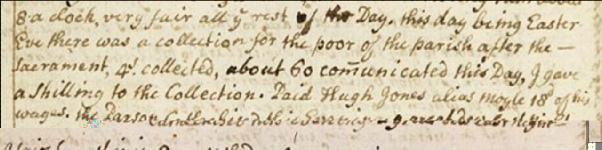 8 a clock, very fair all yͤ rest of the Day. this day being Easter
Eve there was a collection for the poor of the parish after the —
Sacrament, 4ˢ. collected, about 60 com̄unicated this Day, J gave
a Shilling to the Collection. Paid Hugh Jones alias moyle 18ᵈ of his
wages. the